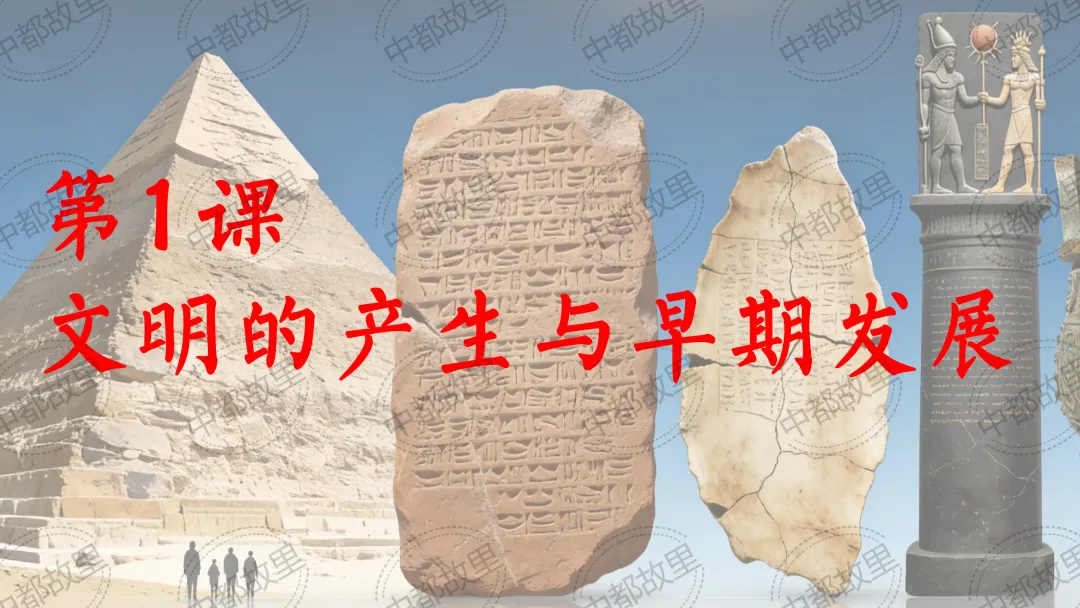 第1课
文明的产生与早期发展
中都故里